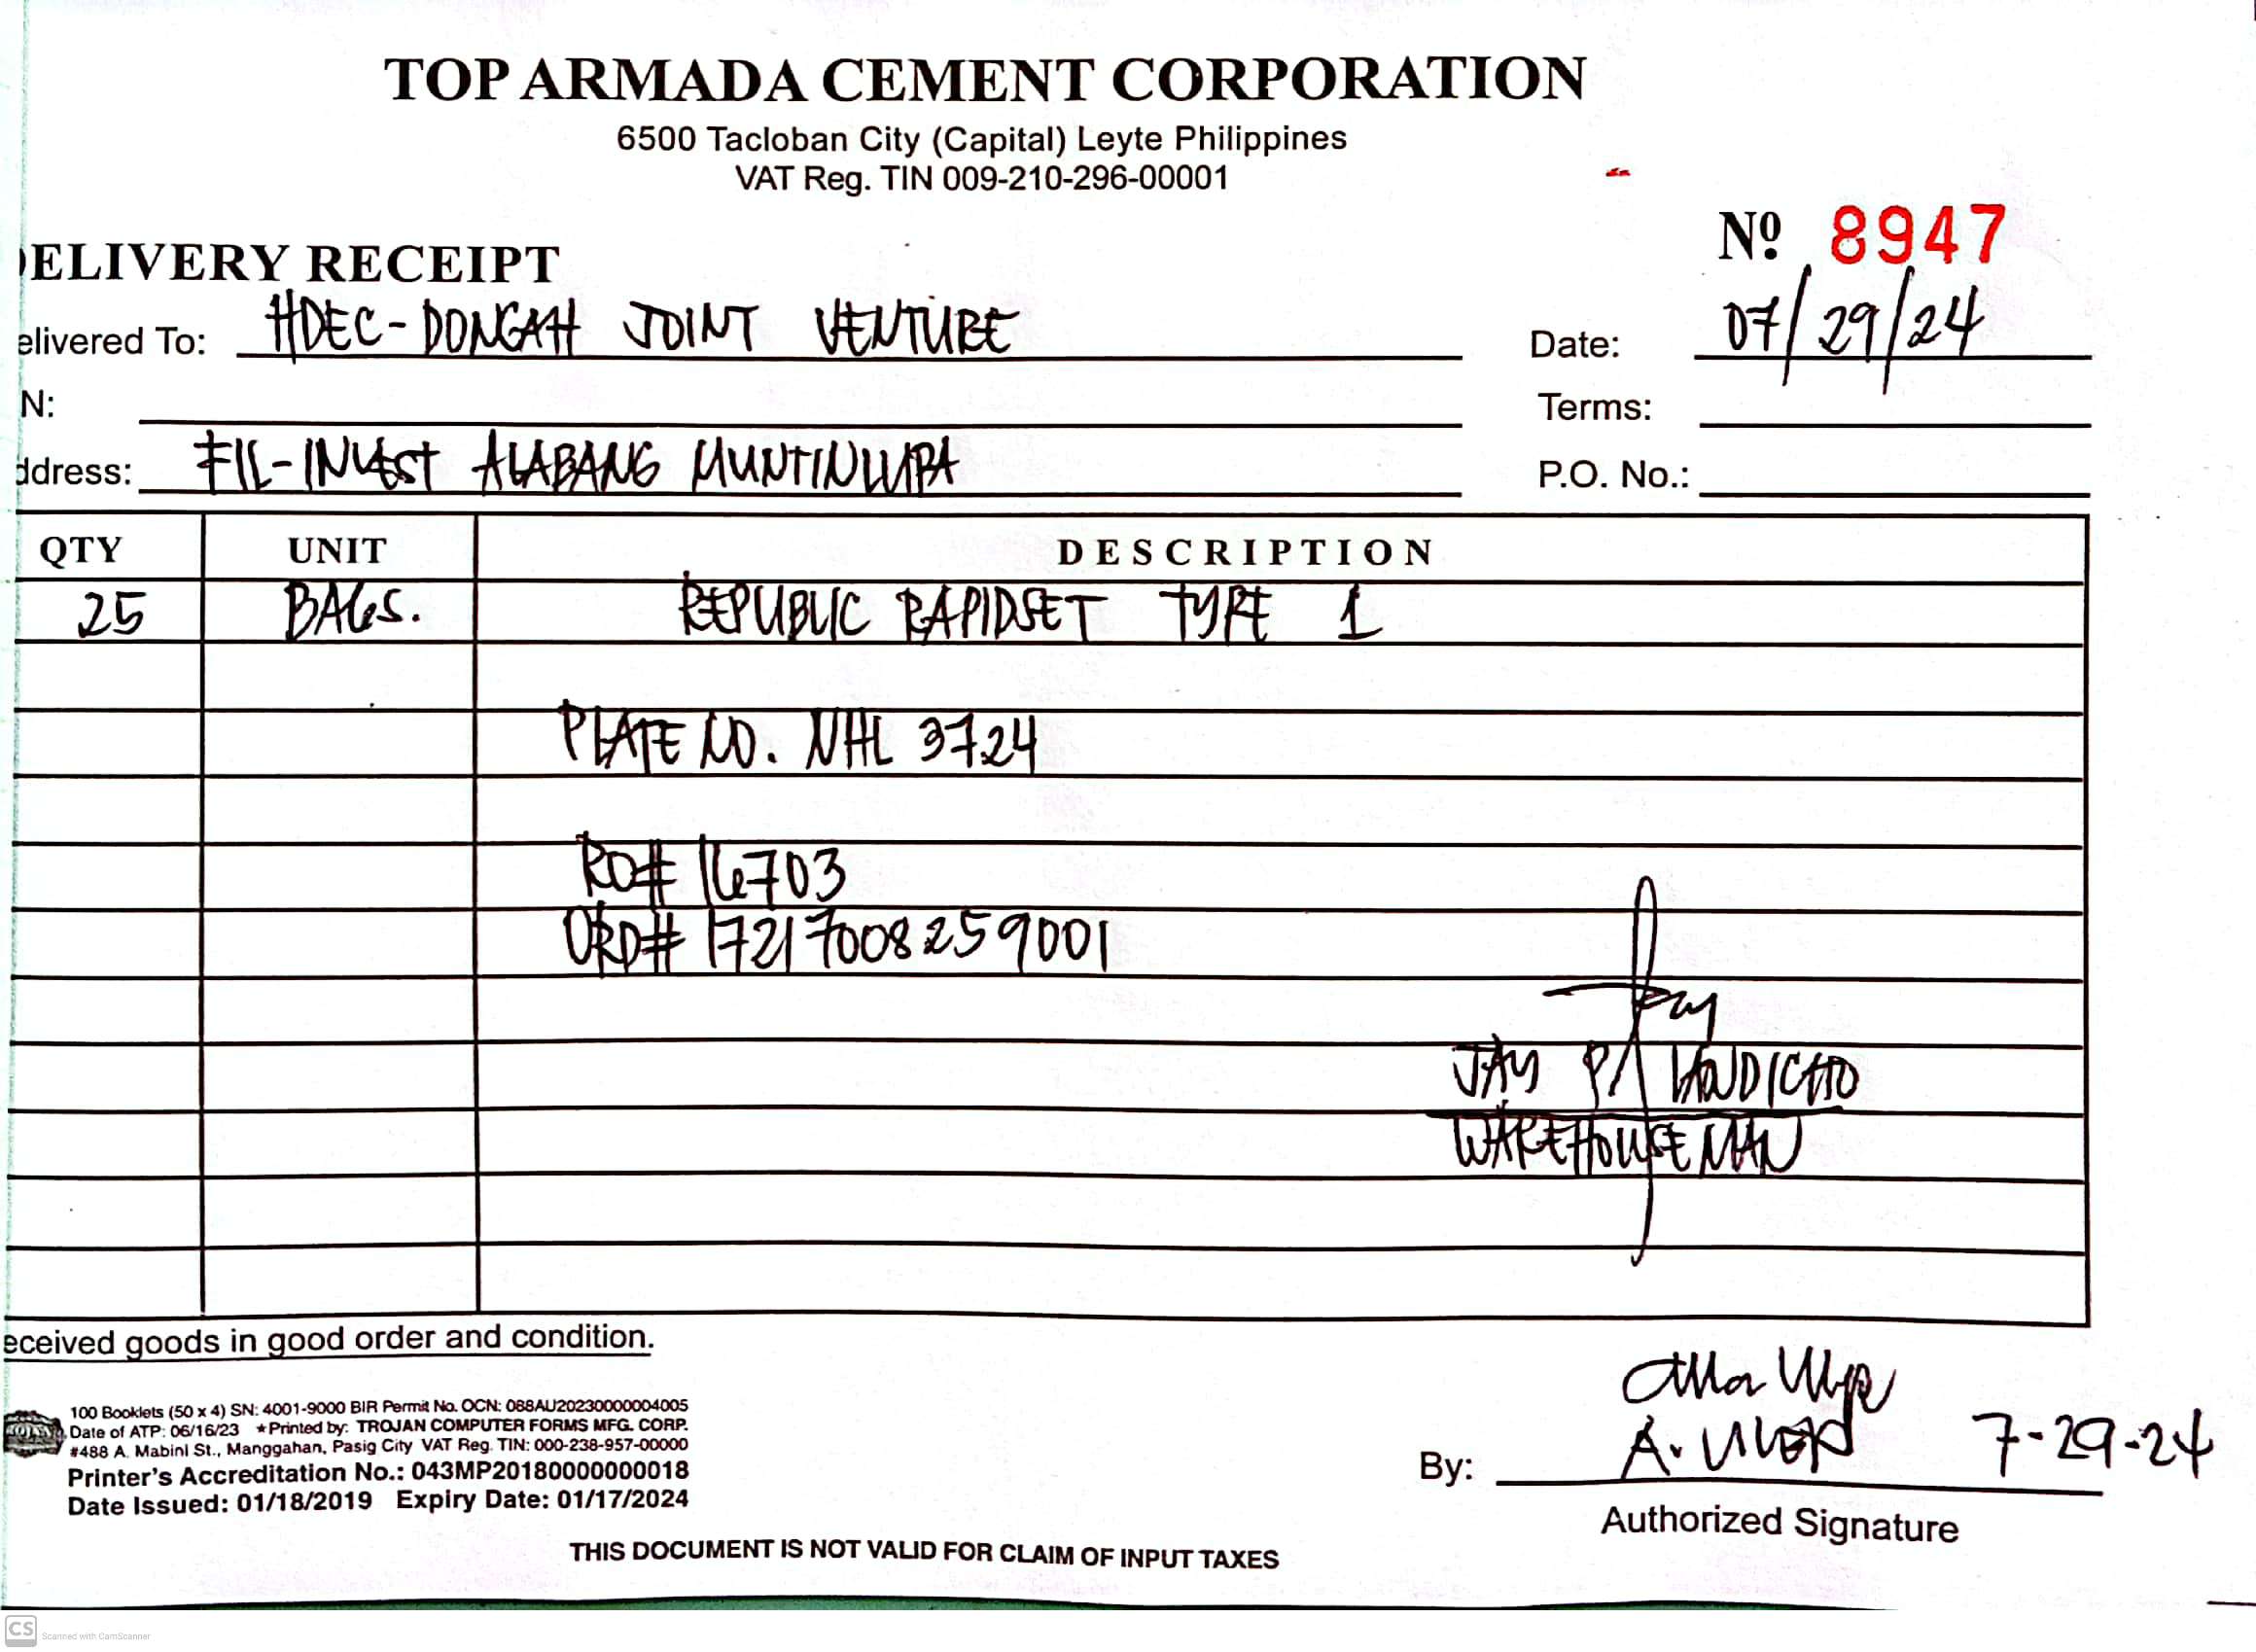 TOP ARMADA CEMENT CORPORATION
6500 Tacloban City (Capital) Leyte Philippines
VAT Reg. TIN 009-210-296-00001
Nº 8947
ELIVERY RECEIPT
elivered To: HDEC-DONGAH JOINT VENTURE Date: 07/29/24
N: Terms:
ddress: FIL-INVEST ALABANG MUNTINLUPA P.O. No.:
QTY UNIT DESCRIPTION
25 BAGS. REPUBLIC RAPIDSET TYPE 1
PLATE NO. NHL 3724
RO# 16703
ORD# 17217008259001
JAY P. LANDICHO
WAREHOUSEMAN
eceived goods in good order and condition.
100 Booklets (50 x 4) SN: 4001-9000 BIR Permit No. OCN: 088AU20230000004005
Date of ATP: 06/16/23 ★Printed by: TROJAN COMPUTER FORMS MFG. CORP.
#488 A. Mabini St., Manggahan, Pasig City VAT Reg. TIN: 000-238-957-00000
Printer's Accreditation No.: 043MP20180000000018
Date Issued: 01/18/2019 Expiry Date: 01/17/2024
By: A. 7-29-24
Authorized Signature
THIS DOCUMENT IS NOT VALID FOR CLAIM OF INPUT TAXES
CS Scanned with CamScanner